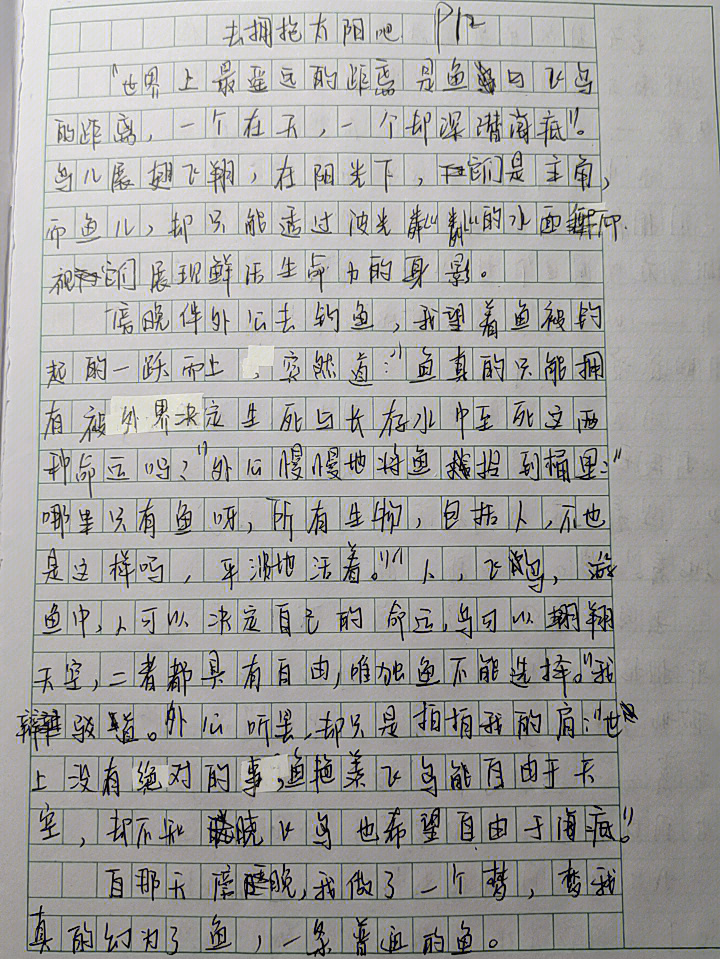 去拥抱太阳吧 P12
"世界上最遥远的距离是鱼与飞鸟
的距离，一个在天，一个却深潜海底"。
鸟儿展翅飞翔，在阳光下，它们是主角，
而鱼儿，却只能透过波光粼粼的水面仰
视它们展现鲜活生命力的身影。
傍晚伴外公去钓鱼，我望着鱼被钓
起的一跃而上，突然道："鱼真的只能拥
有被外界决定生死与长存水中至死这两
种命运吗？"外公慢慢地将鱼拾到桶里："
哪里只有鱼呀，所有生物，包括人，不也
是这样吗，平淡地活着。""人，飞鸟，游
鱼中，人可以决定自己的命运，鸟可以翱翔
天空，二者都具有自由，唯独鱼不能选择。"我
辩驳道。外公听罢，却只是拍拍我的肩："世
上没有绝对的事，鱼艳羡飞鸟能自由于天
空，却不知晓飞鸟也希望自由于海底。"
自那天傍晚，我做了一个梦，梦我
真的幻为了鱼，一条普通的鱼。